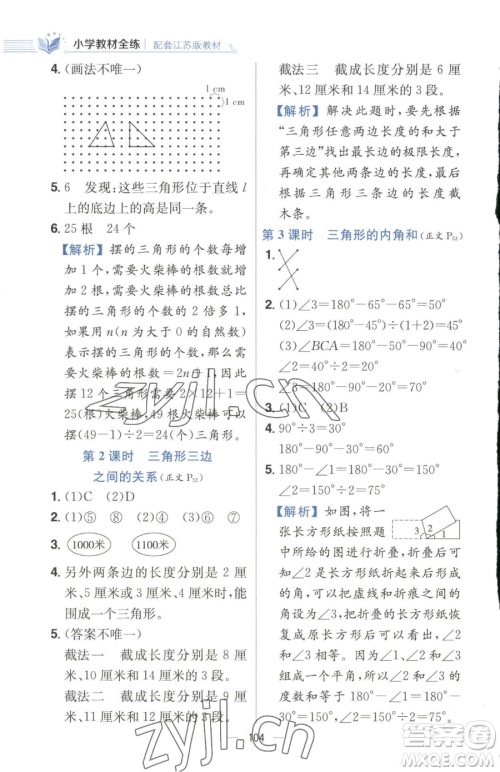 小学教材全练 配套江苏版教材
4. (画法不唯一)
1 cm
1 cm
5. 6 发现：这些三角形位于直线 l
上的底边上的高是同一条。
6. 25 根 24 个
【解析】 摆的三角形的个数每增
加 1 个，需要火柴棒的根数就增
加 2 根，需要火柴棒的总根数总
比摆的三角形的个数的 2 倍多 1
根，所以 n(n 为大于 0 的自然数)
个三角形需要火柴棒的根数与
的关系是：根数=2n+1，因此
摆 12 个三角形需要 2×12+1=
25(根)火柴棒，49 根火柴棒可以
摆(49-1)÷2=24(个)三角形。
第 2 课时 三角形三边
之间的关系(正文 P52)
1. (1)C (2)D
2. (1)⑤ ⑧ (2)③ ④
3. 1000米 1100米
4. 另外两条边的长度分别是 2 厘
米、5 厘米或 3 厘米、4 厘米时，能
围成一个三角形。
5. (答案不唯一)
截法一 截成长度分别是 8 厘
米、10 厘米和 14 厘米的 3 段。
截法二 截成长度分别是 9 厘
米、11 厘米和 12 厘米的 3 段。
截法三 截成长度分别是 6 厘
米、12 厘米和 14 厘米的 3 段。
【解析】 解决此题时，要先根据
“三角形任意两边长度的和大于
第三边”找出最长边的极限长度，
再确定其他两条边的长度，最后
根据三角形三条边的长度截
木条。
第 3 课时 三角形的内角和(正文 P53)
1.
2. (1)∠3=180°-65°-65°=50°
(2)∠3=180°-45°-90°=45°
(3)∠BCA=180°-50°-90°=40°
∠2=40°÷2=20°
∠1=180°-20°-90°=70°
3. (1)C (2)B
4. 90°÷3=30°
180°-90°-30°=60°
180°-30°=150°
∠2=150°÷2=75°
∠1=180°-90°-75°=15°
【解析】 如图，将一
张长方形纸按照题
3 2 1
中所给的图折叠，折叠后可以看
出：∠2 和∠3 的度数相等，因为
把折叠后的长方形纸沿折叠所在
的虚线和折痕之间的角恢复
原状后，可以发现，∠2 与∠2 和
∠3 组成一个平角，所以∠2 和∠3
的度数都等于(180°-30°)÷2
104
zyjl.cn
zyjl.cn
答案圈
MXQE.COM